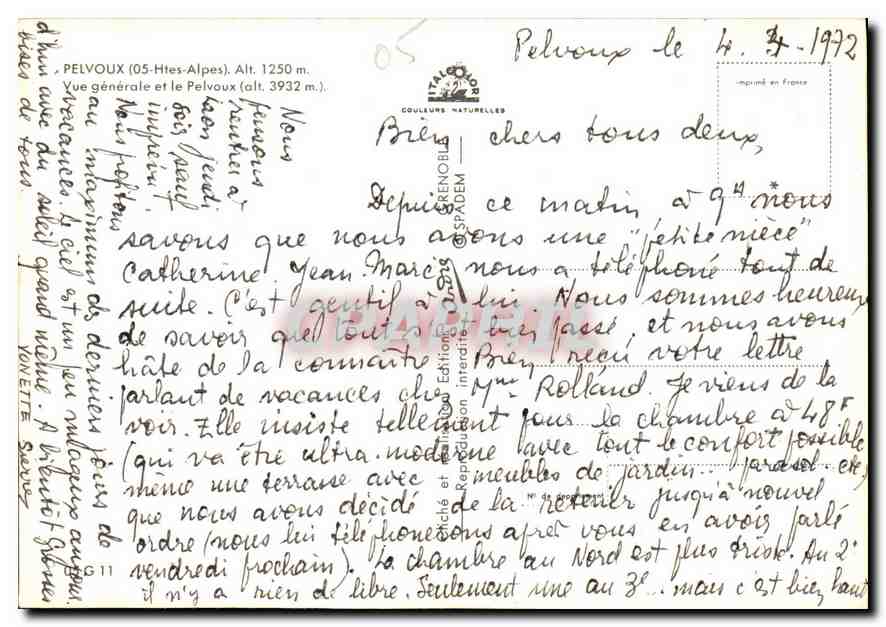 Pelvoux le 4. 4. 1972
05
PELVOUX (05-Htes-Alpes). Alt. 1250 m.
Vue générale et le Pelvoux (alt. 3932 m.).
ITALCOLOR
COULEURS NATURELLES
Imprimé en France
GRENOBLE
SPADEM
Reproduction interdite
N° de
G 11
Bien chers tous deux,
Depuis ce matin à 9H nous
savons que nous avons une "petite nièce"
Catherine. Jean-Marc nous a téléphoné tout de
suite. C'est gentil à lui. Nous sommes heureux
de savoir que tout s'est bien passé, et nous avons
hâte de la connaître. Bien reçu votre lettre
parlant de vacances chez Mme Rolland. Je viens de la
voir. Elle insiste tellement pour la chambre à 48F
(qui va être ultra-moderne avec tout le confort possible
même une terrasse avec meubles de jardin.. parasol etc)
que nous avons décidé de la retenir jusqu'à nouvel
ordre (nous lui téléphonerons après vous en avoir parlé
vendredi prochain). La chambre au Nord est plus triste. Au 2e
il n'y a rien de libre. Seulement une au 3e... mais c'est bien haut
Nous
pensons
rentrer à
Lyon jeudi
soir sauf
imprévu.
Nous profitons
au maximum des derniers jours de
vacances. Le ciel est un peu nuageux aujour
d'hui avec du soleil quand même. A bientôt Grosses
bises de tous.
YONETTE